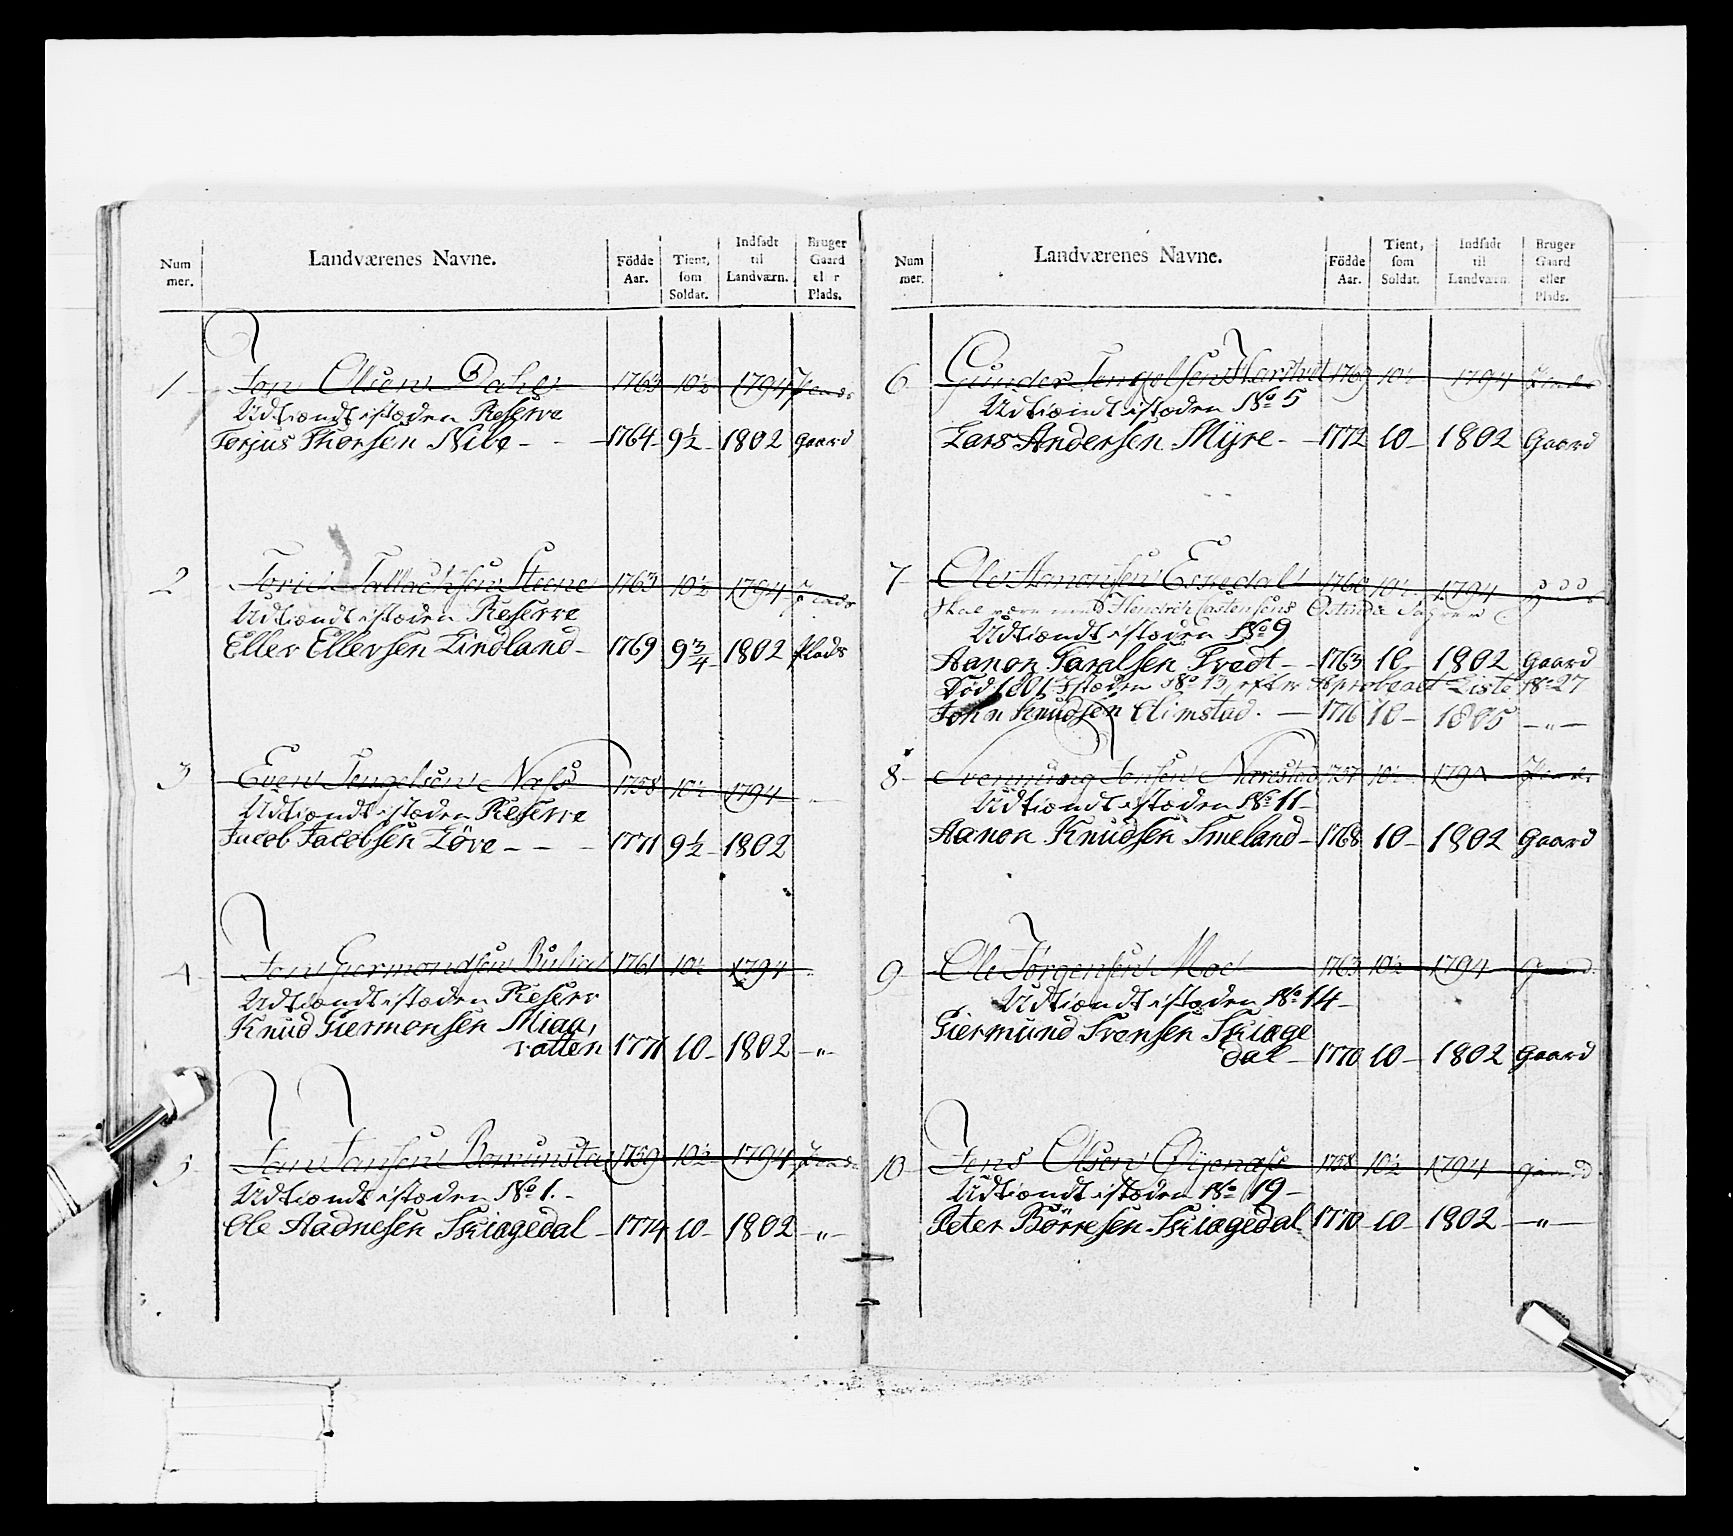 Num mer. Landværenes Navne. Födde Aar. Tient, som Soldat. Indsadt til Landværn. Bruger Gaard eller Plads.
1 Jon Olsen Daher 1763 10½ 1794 Plads
Udtiændt istæden Reserve
Torjus Thorsen Nibe - - - 1764 - 9½ - 1802 Gaard
2 Steene 1763 10½ 1794 Plads
Udtiændt istæden Reserve
Eller Ellevsen Lindland - 1769 9¾ 1802 Plads
3 Even Tengelsen Næss 1758 10½ 1794
Udtiændt istæden Reserve
Jacob Jacobsen Löve - - - 1771 9½ - 1802
4 Jon Giermondsen 1761 10½ 1794
Udtiændt istæden Reserv
Knud Giermonsen Miaa,
vatten 1771 10 - 1802 - " -
5 Jon Jonsen 1759 10½ 1794 Plads
Udtiændt istæden No 1. -
Ole Aadnesen Skiagedal - 1774 10 - 1802 - " -
Num mer. Landværenes Navne. Födde Aar. Tient, som Soldat. Indsadt til Landværn. Bruger Gaard eller Plads.
6 Gunder Tengelsen 1769 10½ 1794
Udtiændt istæden No 5
Lars Andersen Mÿre - 1772 10 - 1802 Gaard
7 Ole Aanonsen Espedal 1760 10½ 1794
Skal være med Hendrich
Udtiændt istæden No 9
Aanon Taralsen Tvedt - - 1763 10 - 1802 Gaard
Död 1801 Istæden No 13, efter Aproberet Liste No 27
John Knudsen Olimstad. - 1776 10 - 1805 - " -
8 - Jonsen Narestad 1757 10½ 1794
Udtiændt istæden No 11 -
Aanon Knudsen Smeland - 1768 10 - 1802 Gaard
9 Ole Jörgensen Moe 1763 10½ 1794 Gaard
Udtiændt istæden No 14 -
Giermund Svensen Skiage
dal - 1770 10 - 1802 Gaard
10 Jens Olsen 1758 10½ 1794 Gaard
Udtiændt istæden No 19 -
Peter Börresen Skiagedal 1770 - 10 - 1802 - " -